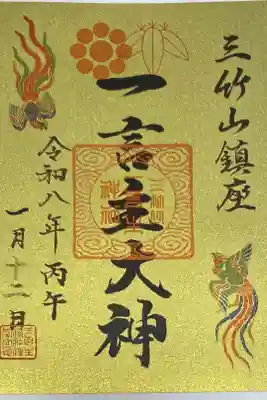 三竹山鎮座
一言主大神
令和八年 丙午
一月十二日